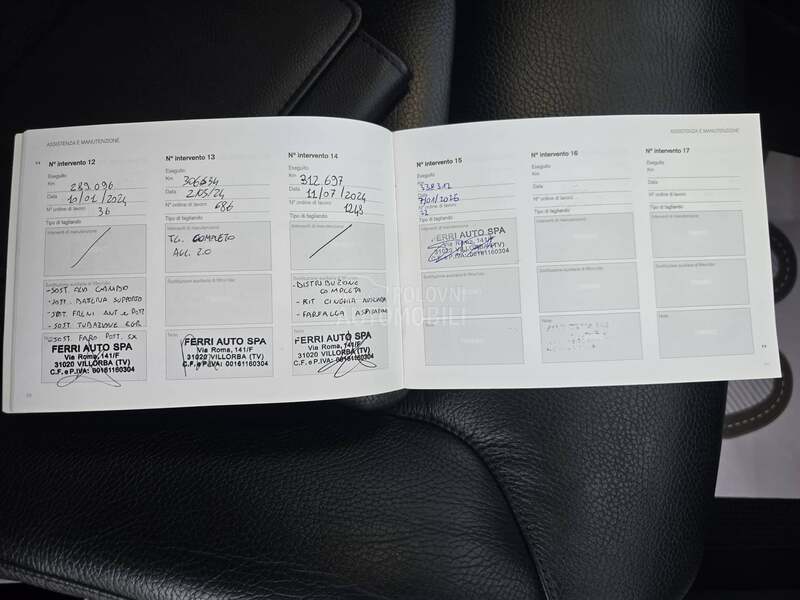 ASSISTENZA E MANUTENZIONE
N° intervento 12
Eseguito
Km 289.096
Data 10/01/2024
N° ordine di lavoro 36
Tipo di tagliando
Interventi di manutenzione
Sostituzione ausiliaria di filtro/olio
- SOST. OLIO CAMBIO
- SOST. BATTERIA SUPPORTO
- SOST. FRENI ANT e POST
- SOST. TUBAZIONE EGR
- SOST FARO POST. SX
FERRI AUTO SPA
Via Roma, 141/F
31020 VILLORBA (TV)
C.F. e P.IVA: 00161160304
N° intervento 13
Eseguito
Km 306634
Data 2/05/24
N° ordine di lavoro 686
Tipo di tagliando
Interventi di manutenzione
TG. COMPLETO
ALL 2.0
Note
FERRI AUTO SPA
Via Roma, 141/F
31020 VILLORBA (TV)
C.F. e P.IVA: 00161160304
N° intervento 14
Eseguito
Km 312.697
Data 11/07/2024
N° ordine di lavoro 1248
Tipo di tagliando
Interventi di manutenzione
- DISTRIBUZIONE
COMPLETA
- KIT CINGHIA
- FARFALLA ASPIRAZIONE
FERRI AUTO SPA
Via Roma, 141/F
31020 VILLORBA (TV)
C.F. e P.IVA: 00161160304
POLOVNI
AUTOMOBILI
ASSISTENZA E MANUTENZIONE
N° intervento 15
Eseguito
Km 338312
7/01/2026
52
Tipo di tagliando
FERRI AUTO SPA
Via Roma, 141/F
31020 VILLORBA (TV)
C.F. e P.IVA: 00161160304
Note
N° intervento 16
Eseguito
Km
Data
N° ordine di lavoro
Tipo di tagliando
Interventi di manutenzione
Note
N° intervento 17
Eseguito
Km
Data
N° ordine di lavoro
Tipo di tagliando
Interventi di manutenzione
Note